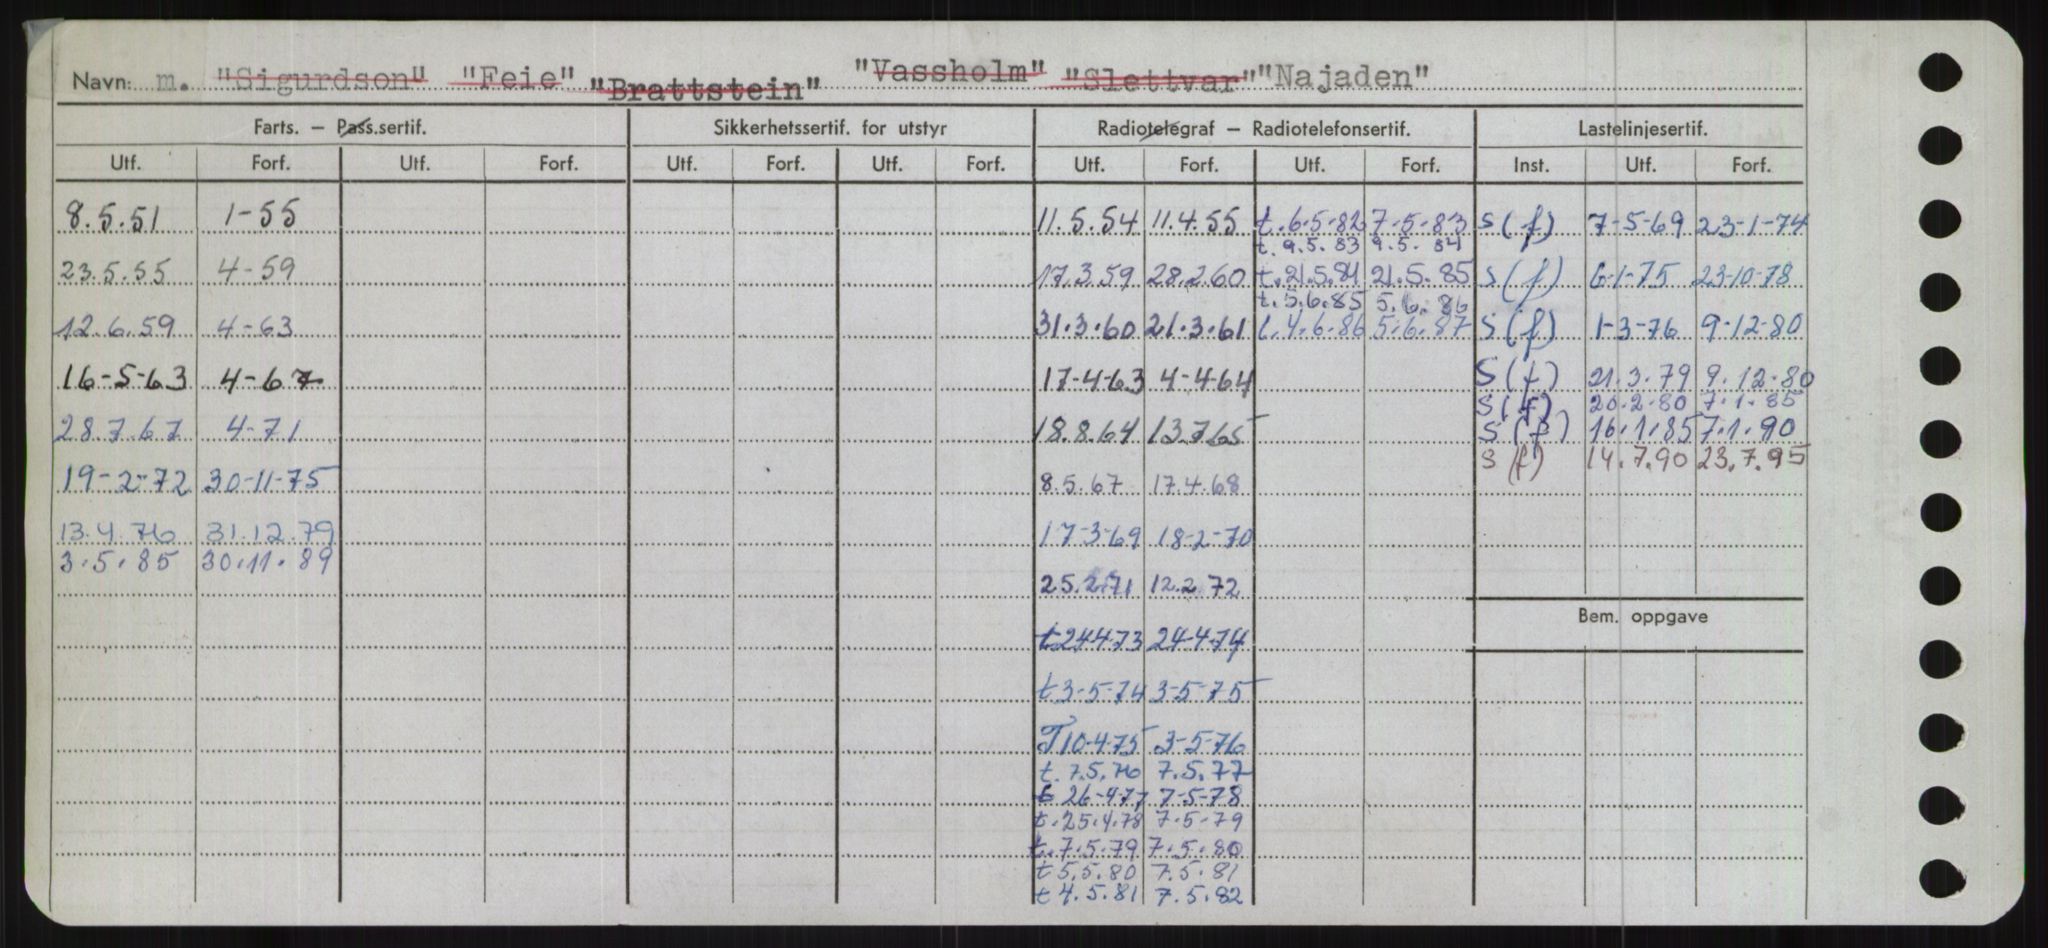 Navn: m. "Sigurdson" "Feie" "Brattstein" "Vassholm" "Slettvar" "Najaden"
Farts. – Pass.sertif. Sikkerhetssertif. for utstyr Radiotelegraf – Radiotelefonsertif. Lastelinjesertif.
Utf. Forf. Utf. Forf. Utf. Forf. Utf. Forf. Utf. Forf. Utf. Forf. Inst. Utf. Forf.
8.5.51 1-55 11.5.54 11.4.55 t.6.5.82 7.5.83 S(f) 7-5-69 23-1-74
t.9.5.83 9.5.84
23.5.55 4-59 17.3.59 28.2.60 t.21.5.84 21.5.85 S(f) 6-1-75 23-10-78
t.5.6.85 5.6.86
12.6.59 4-63 31.3.60 21.3.61 t.4.6.86 5.6.87 S(f) 1-3-76 9-12-80
16-5-63 4-67 17-4-63 4-4-64 S(f) 21.3.79 9.12.80
S(f) 20.2.80 7.1.85
28.7.67 4-71 18.8.64 13.7.65 S(f) 16.1.85 7.1.90
S(f) 14.7.90 23.7.95
19-2-72 30-11-75 8.5.67 17.4.68
13.4.76 31.12.79 17-3-69 18-2-70
3.5.85 30.11.89
25.2.71 12.2.72
Bem. oppgave
t24-4-73 24-4-74
t3-5-74 3-5-75
T10-4-75 3-5-76
t.7.5.76 7.5.77
t 26-4-77 7-5-78
t.25.4.78 7.5.79
t.7.5.79 7.5.80
t 5.5.80 7.5.81
t 4.5.81 7.5.82